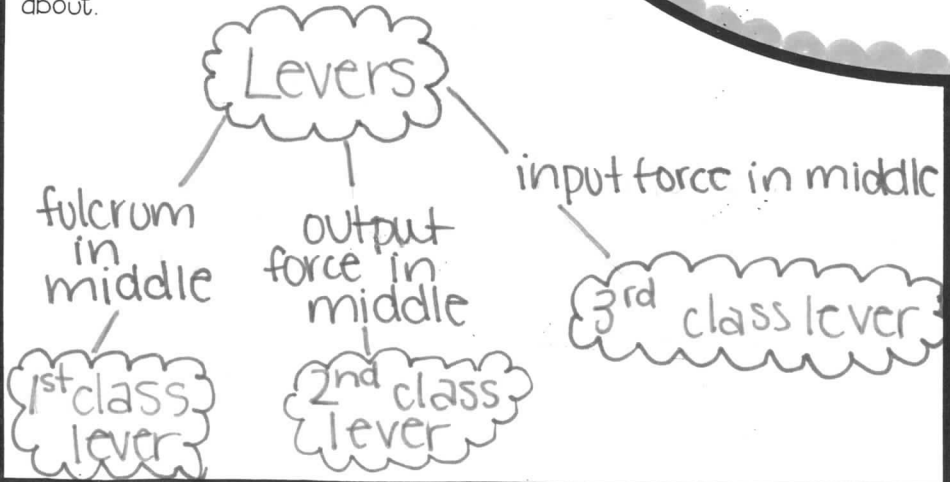 about.
Levers
fulcrum
in
middle
output
force in
middle
input force in middle
1st class
lever
2nd class
lever
3rd class lever